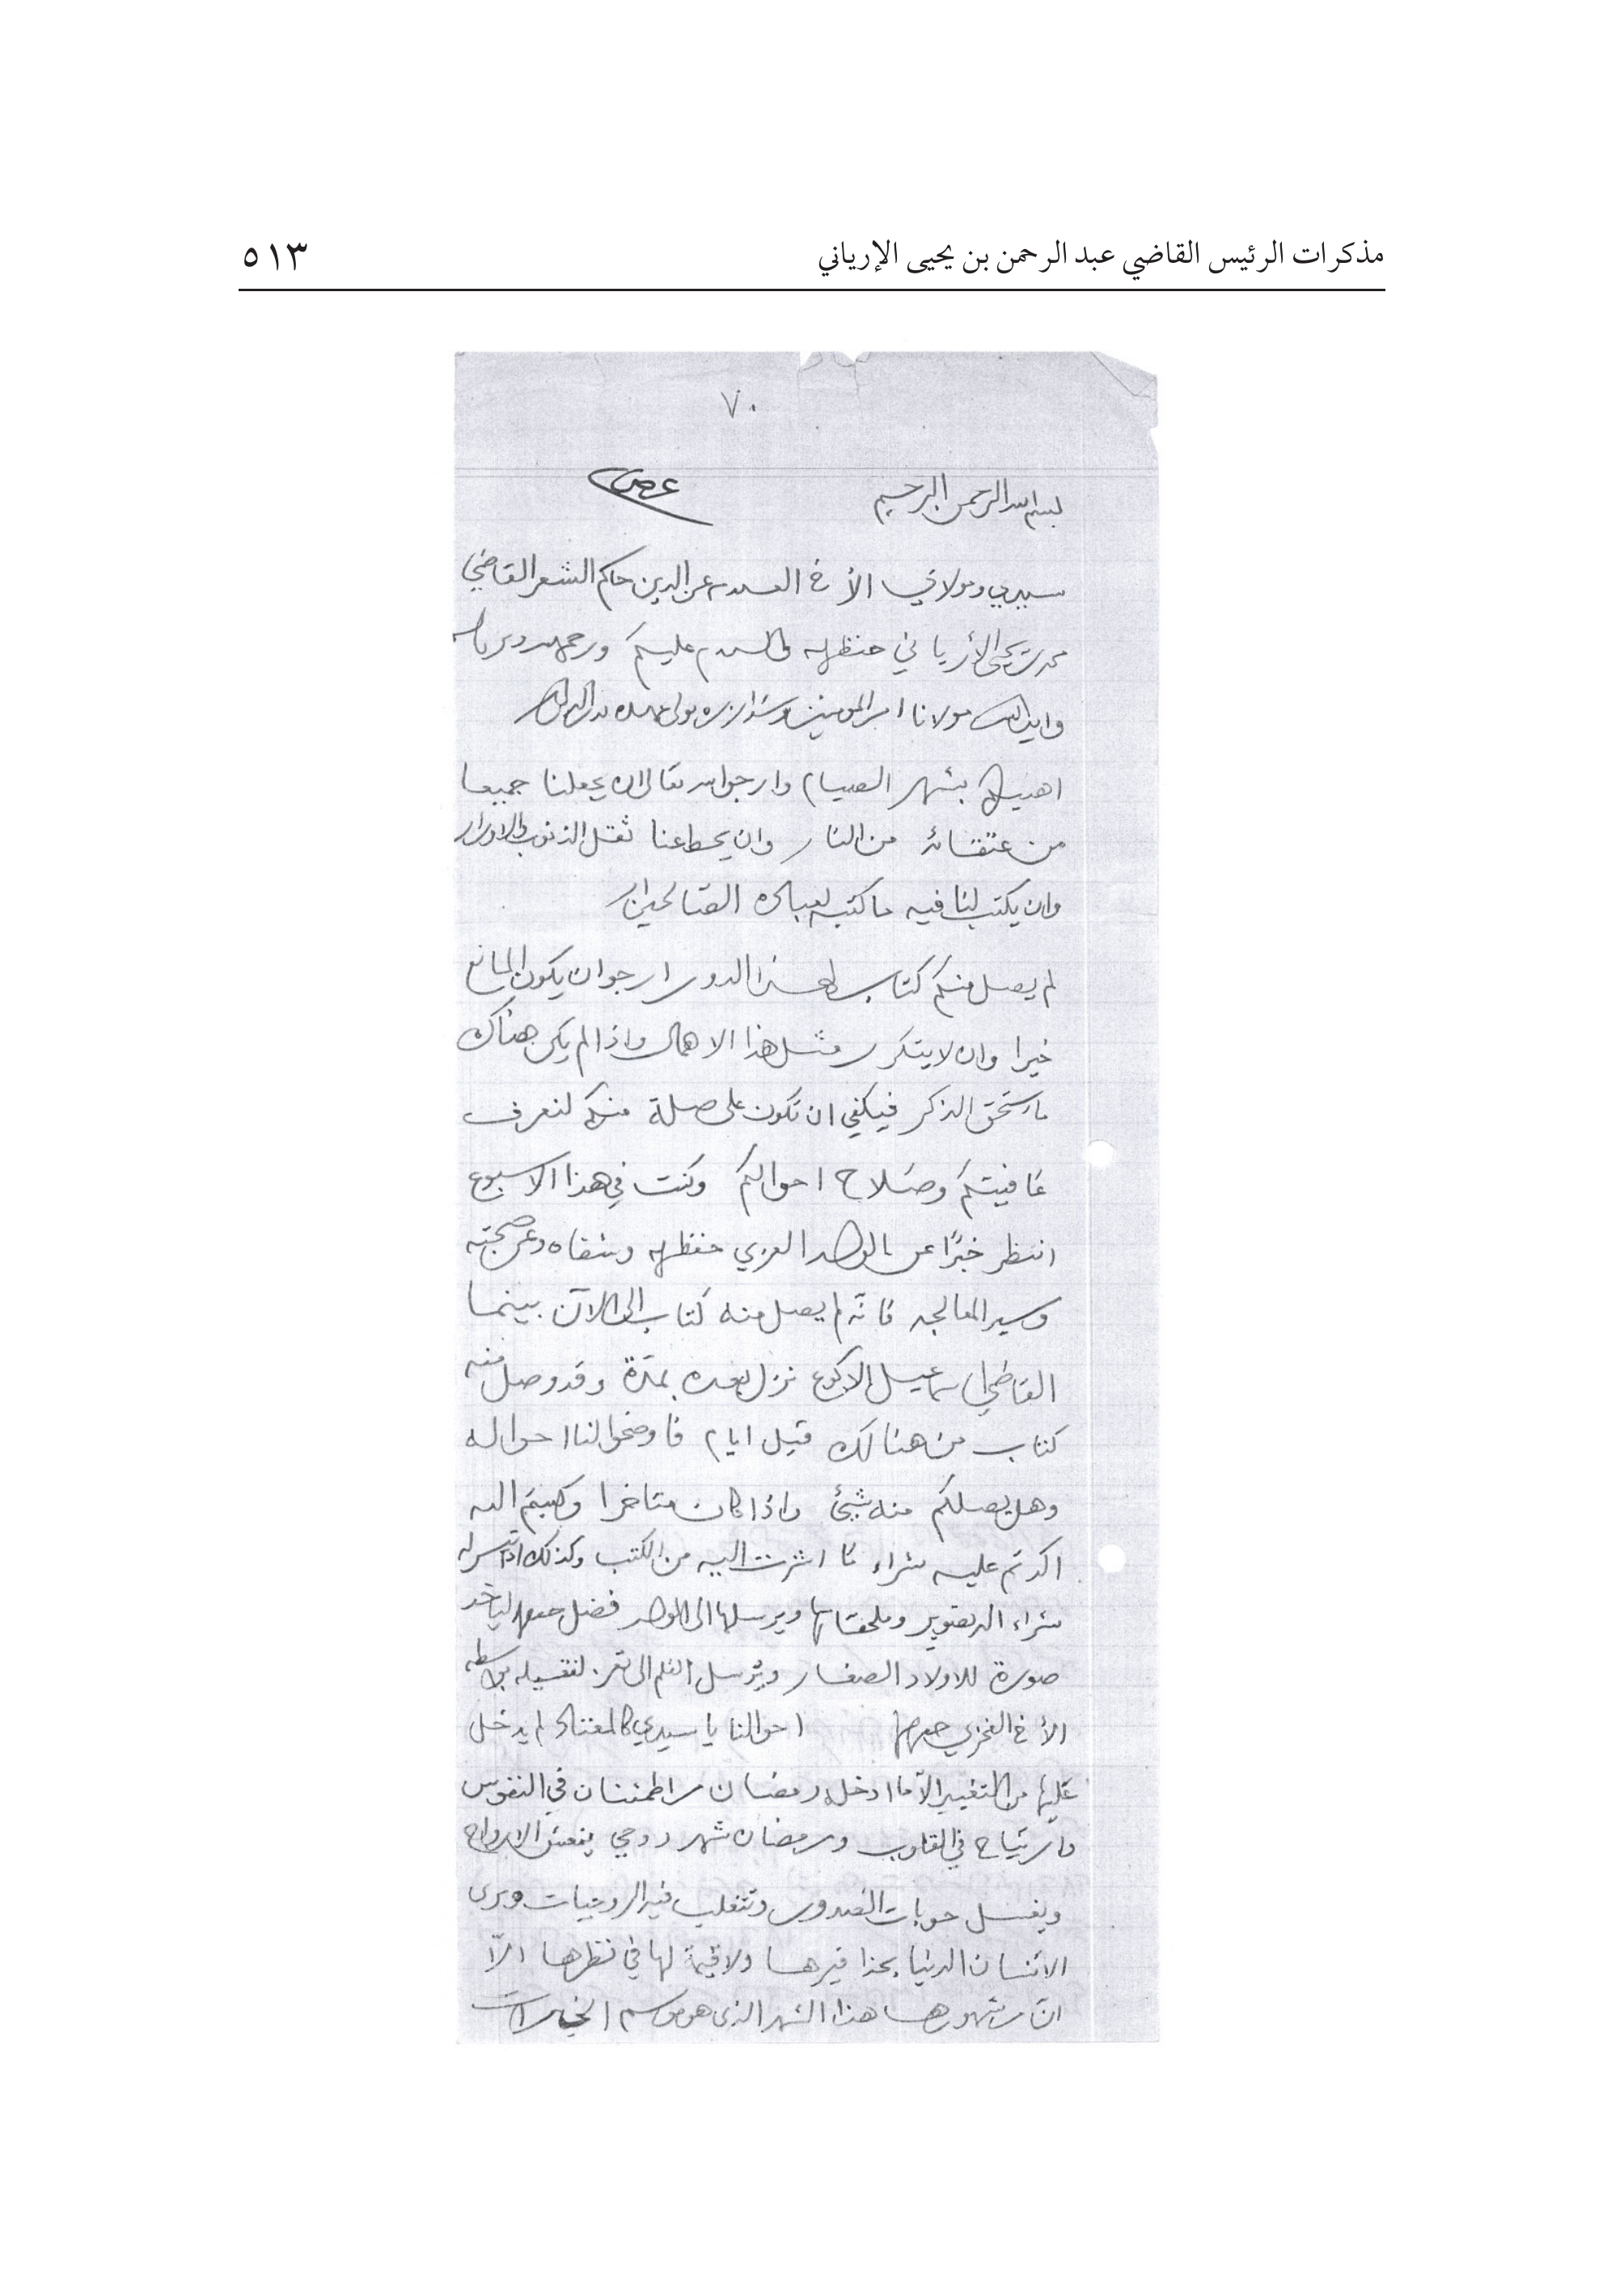 مذكرات الرئيس القاضي عبد الرحمن بن يحيى الإرياني
٥١٣
٧٠
بسم الله الرحمن الرحيم
سيدي ومولاي الأخ العلامة عز الدين حاكم الشعر القاضي
محمد بن يحيى الأرياني حفظه الله والسلام عليكم ورحمة الله وبركاته
وايد الله مولانا امير المومنين وشد ازره بولي عهده
اهنيكم بشهر الصيام وارجو الله تعالى ان يجعلنا جميعا
من عتقائه من النار وان يحط عنا ثقل الذنوب والاوزار
وان يكتب لنا فيه ما كتبه لعباده الصالحين
لم يصل منكم كتاب لهذا الدور ارجو ان يكون المانع
خيرا وان لا يتكرر مثل هذا الاهمال واذا لم يكن هناك
ما يستحق الذكر فيكفي ان نكون على صلة منكم لنعرف
عافيتكم وصلاح احوالكم وكنت في هذا الاسبوع
انتظر خبرًا عن الولد العزي حفظه الله وشفاه وعن صحته
وسير المعالجه فانه لم يصل منه كتاب الى الآن بينما
القاضي اسماعيل الاكوع نزل بعده بمدة وقد وصل منه
كتاب من هنالك قبل ايام فاوضحوا لنا احواله
وهل يصلكم منه شيئ واذا كان متاخرا وكتبتم اليه
اكدتم عليه شراء ما اشرت اليه من الكتب وكذلك اذا تيسر له
شراء التصوير وملحقاتها ويرسلها الى الولد فضل حفظه الله لياخذ
صورة للاولاد الصغار ويرسل الفلم الى تعز لنغسيله بواسطه
الأخ الفخري حفظه الله احوالنا يا سيدي كالمعتاد لم يدخل
عليها من التغيير الآ ما ادخله رمضان من اطمئنان في النفوس
وارتياح في القلوب ورمضان شهر روحي ينعش الارواح
ويغسل حوبات الصدور وتتغلب فيه الروحيات ويرى
الانسان الدنيا بحذافيرها ولا قيمة لها في نظرها الآ
ان من شهورها هذا الشهر الذي هو موسم الخيرات